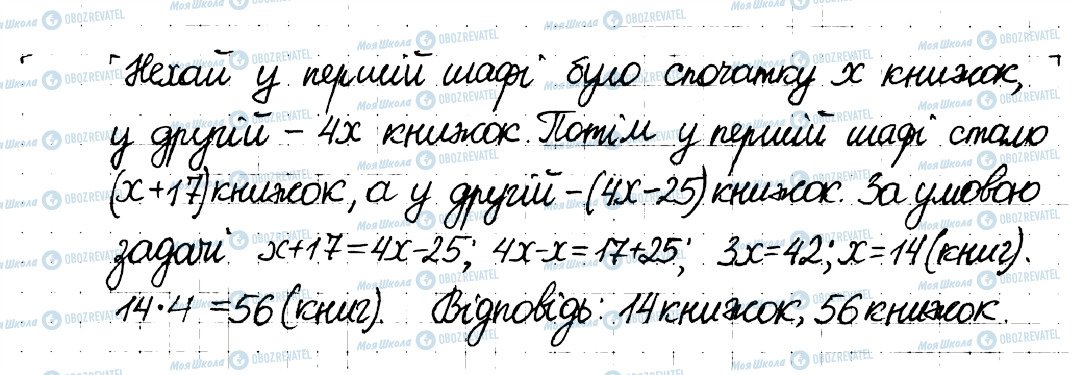 Нехай у першій шафі було спочатку x книжок,
у другій – 4x книжок. Потім у першій шафі стало
(x+17) книжок, а у другій – (4x–25) книжок. За умовою
задачі x+17=4x–25; 4x–x=17+25; 3x=42; x=14 (книг).
14·4=56 (книг). Відповідь: 14 книжок, 56 книжок.
Моя Школа OBOZREVATEL